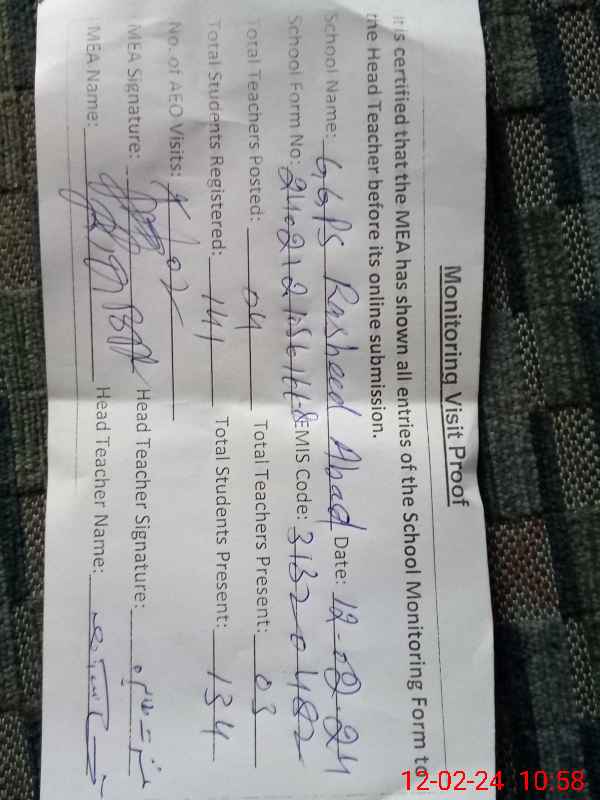 Monitoring Visit Proof
It is certified that the MEA has shown all entries of the School Monitoring Form to
the Head Teacher before its online submission.
School Name: GGPS Rasheed Abad Date: 12-02-24
School Form No: EMIS Code: 31320482
Total Teachers Posted: 04 Total Teachers Present: 03
Total Students Registered: 141 Total Students Present: 134
No. of AEO Visits: 02
MEA Signature: Head Teacher Signature:
MEA Name: Head Teacher Name:
12-02-24 10:58